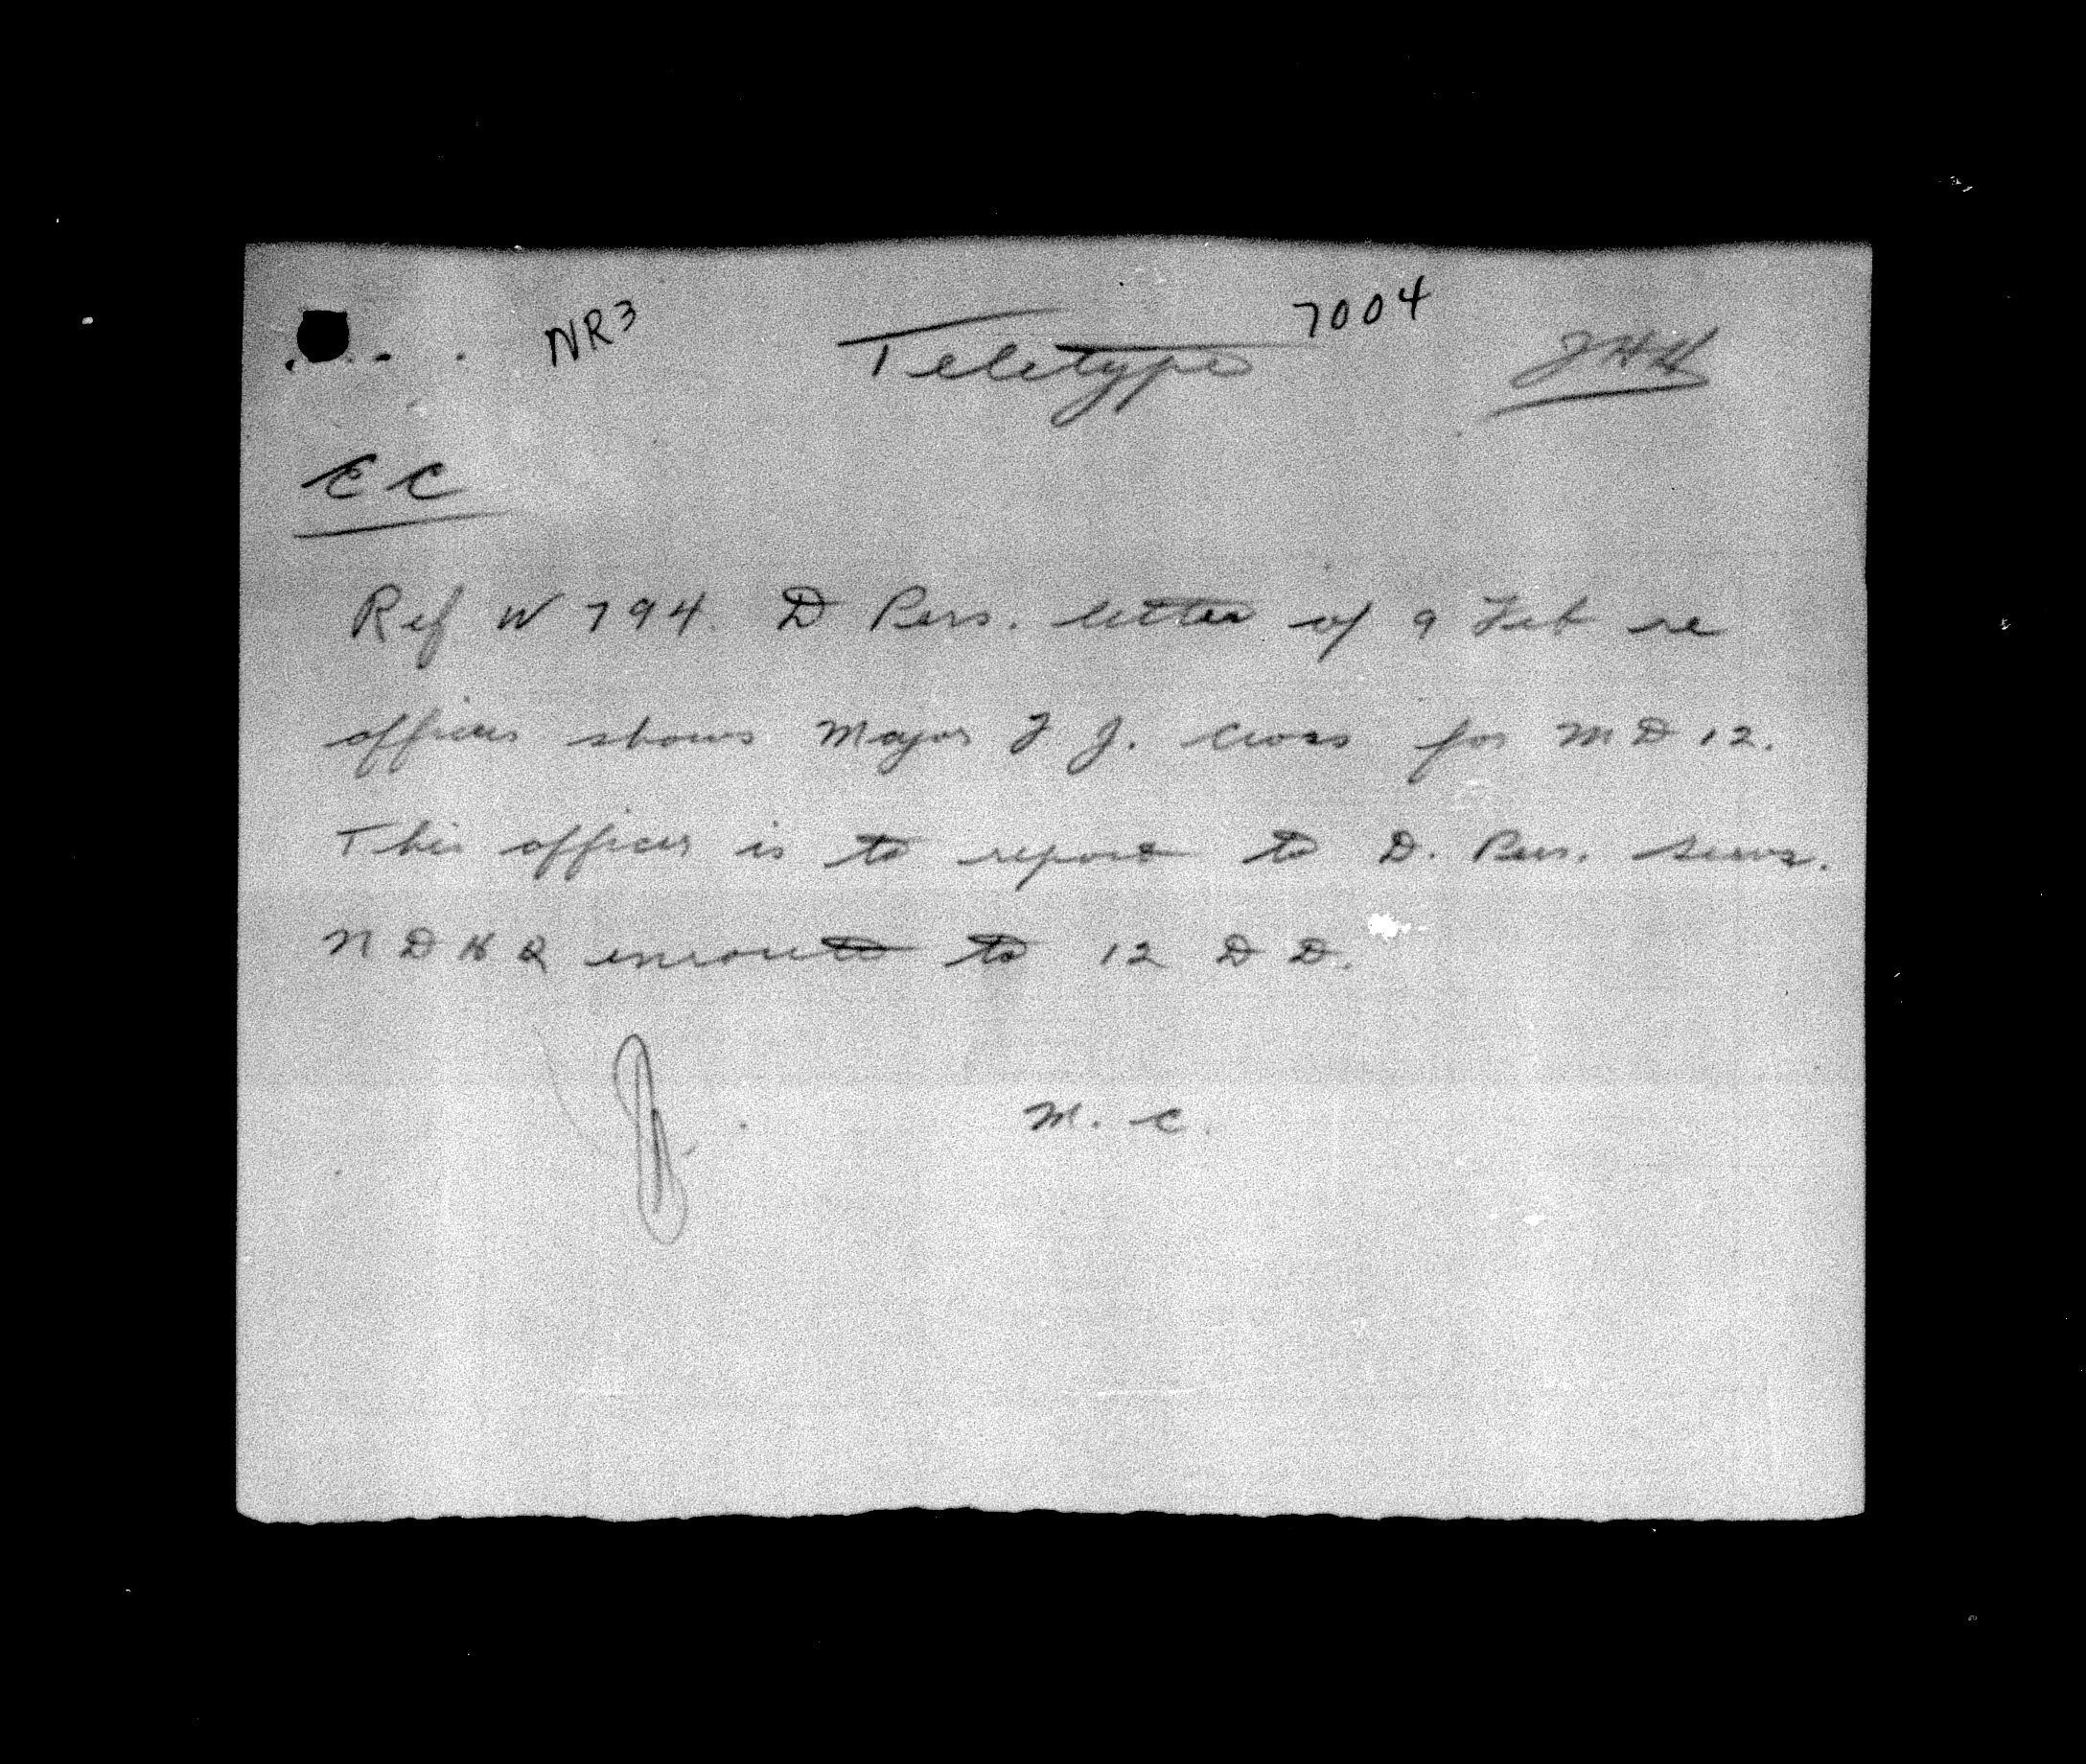 NR3 Teletype 7004
EC
Ref W 794. D Pers. letter of 9 Feb re
officers shows Major F J. Cross for MD 12.
This officer is to report to D. Pers. Servs.
NDHQ enroute to 12 DD.
M. C.